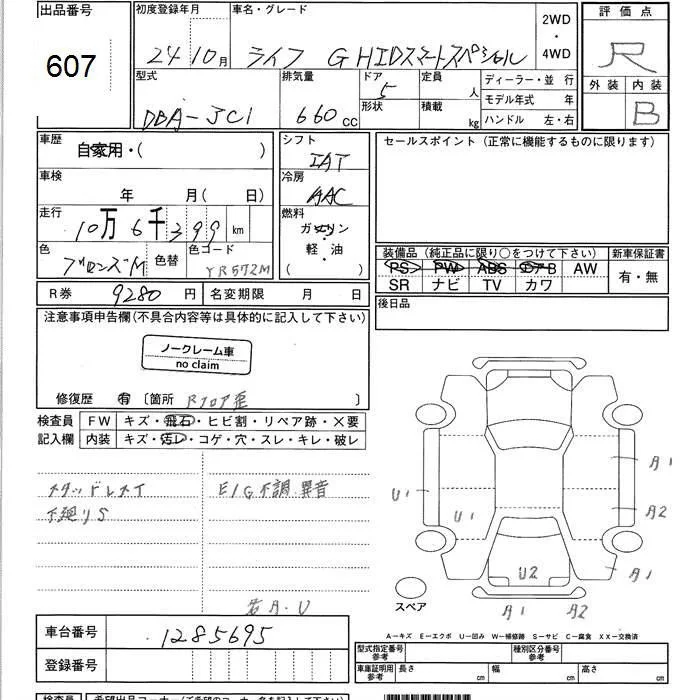 出品番号
607
初度登録年月
24 10月
車名・グレード
ライフ G HIDスマートスペシャル
2WD
・
4WD
評価点
R
外装 内装
B
型式
DBA-JC1
排気量
660 cc
ドア
5
形状
定員
人
積載
kg
ディーラー・並行
モデル年式 年
ハンドル 左・右
車歴
自家用・( )
車検
年 月(日)
走行
10万6千399 km
色
ブロンズM
色替
色コード
YR572M
シフト
IAT
冷房
AAC
燃料
ガソリン
軽・油
( )
セールスポイント(正常に機能するものに限ります)
装備品(純正品に限り○をつけて下さい)
PS PW ABS エアB AW
SR ナビ TV カワ
新車保証書
有・無
R券 9280円
名変期限 月 日
後日品
注意事項申告欄(不具合内容等は具体的に記入して下さい)
ノークレーム車
no claim
修復歴 有 〔箇所 Rフロア歪 〕
検査員
記入欄
FW キズ・飛石・ヒビ割・リペア跡・×要
内装 キズ・汚レ・コゲ・穴・スレ・キレ・破レ
スタッドレスタイ
下廻りS
E/G不調 異音
若A・U
U1
U1
A1
A2
A1
U2
A1
A2
スペア
A-キズ E-エクボ U-凹み W-補修跡 S-サビ C-腐食 XX-交換済
車台番号
1285695
登録番号
型式指定番号
参考
種別区分番号
参考
車庫証明用
参考
長さ cm
幅 cm
高さ cm